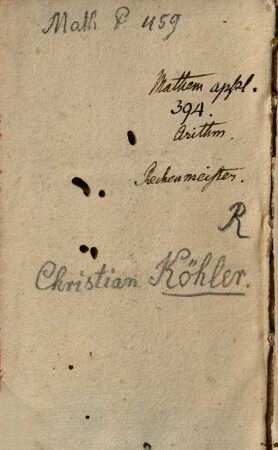 Math P 459
Mathem appl.
394.
Arithm.
Rechenmeister.
R
Christian Köhler.